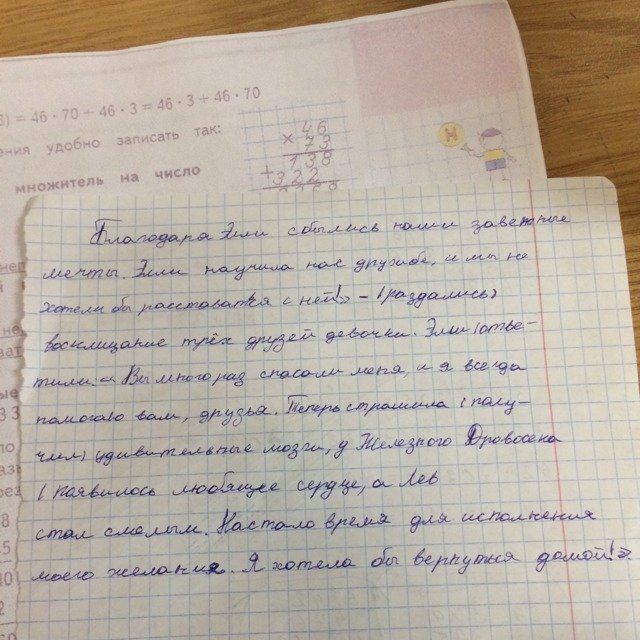 3) = 46 · 70 + 46 · 3 = 46 · 3 + 46 · 70
ения удобно записать так:
множитель на число
46
× 73
138
+322
Н
Благодаря Элли сбылись наши заветные
мечты. Элли научила нас дружбе, и мы не
хотели бы расставаться с ней!» – (раздались)
восклицание трёх друзей девочки. Элли (отве-
тили: « Вы много раз спасали меня, и я всегда
помогаю вам, друзья. Теперь страшила (полу-
чил) удивительные мозги, у Железного Дровосека
(появилось любящее сердце, а Лев
стал смелым. Настало время для исполнения
моего желания. Я хотела бы вернуться домой!»